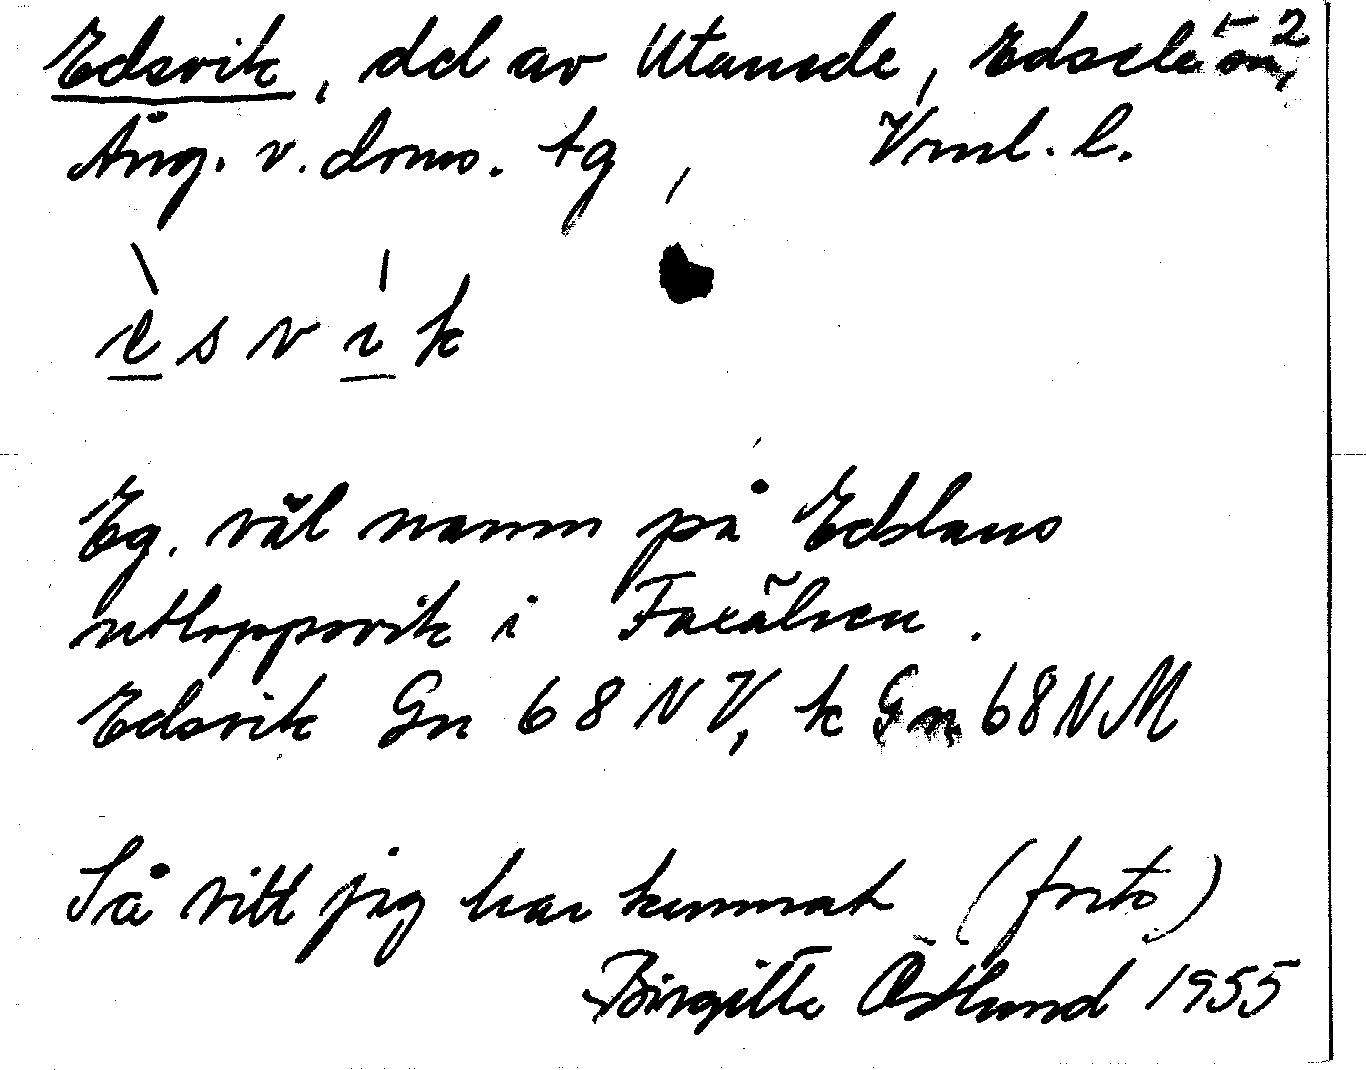 Edsvik, del av Utanede, Edsele sn, 2
Ång. v. doms. tg, Vrnl. l.
èsvík
Eg. väl namn på Edslans
utloppsvik i Faxälven.
Edsvik Gn 68 NV, k Gn 68 NM
Så vitt jag har kunnat (forts)
Birgitta Östlund 1955